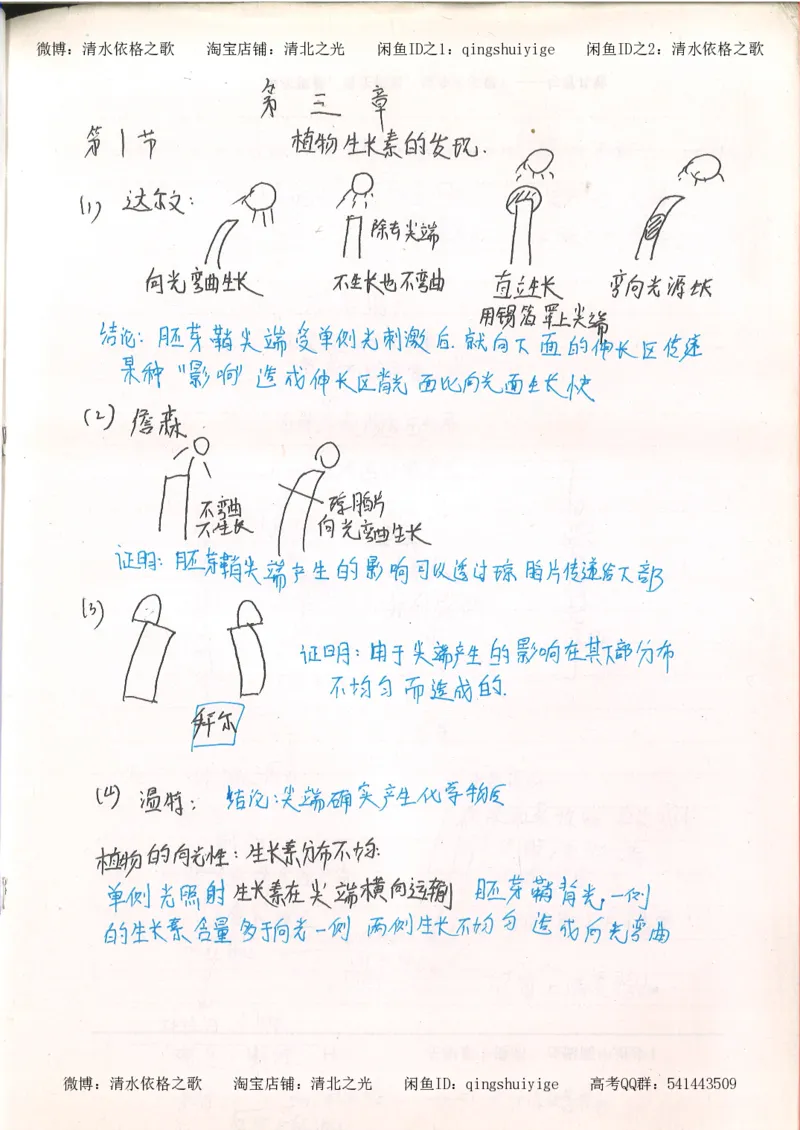 微博：清水依格之歌 淘宝店铺：清北之光 闲鱼ID之1：qingshuiyige 闲鱼ID之2：清水依格之歌
第三章
第1节 植物生长素的发现.
(1) 达尔文：
除去尖端
向光弯曲生长 不生长也不弯曲 直立生长 弯向光源生长
用锡箔罩上尖端
结论：胚芽鞘尖端受单侧光刺激后.就向下面的伸长区传递
某种"影响"造成伸长区背光面比向光面生长快
(2) 詹森
不弯曲 琼脂片
不生长 向光弯曲生长
证明：胚芽鞘尖端产生的影响可以透过琼脂片传递给下部
(3)
证明：由于尖端产生的影响在其下部分布
不均匀而造成的.
拜尔
(4) 温特： 结论：尖端确实产生化学物质
植物的向光性：生长素分布不均.
单侧光照射 生长素在尖端横向运输 胚芽鞘背光一侧
的生长素含量多于向光一侧 两侧生长不均匀 造成向光弯曲
微博：清水依格之歌 淘宝店铺：清北之光 闲鱼ID：qingshuiyige 高考QQ群：541443509